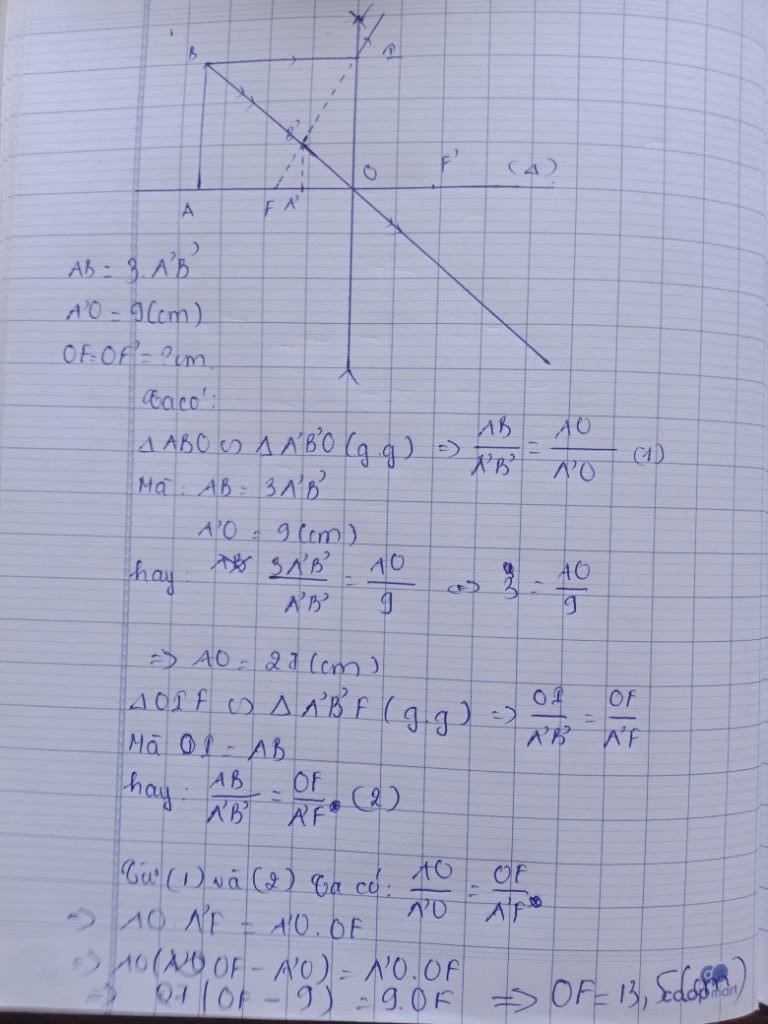 B I
B'
O F' (Δ)
A F A'
AB = 3.A'B'
A'O = 9(cm)
OF=OF'=?cm.
Ta có:
ΔABO ∽ ΔA'B'O (g.g) => AB/A'B' = AO/A'O (1)
Mà: AB = 3A'B'
A'O = 9(cm)
hay: 3A'B'/A'B' = AO/9 <=> 3 = AO/9
=> AO = 27(cm)
ΔOIF ∽ ΔA'B'F (g.g) => OI/A'B' = OF/A'F
Mà OI = AB
hay: AB/A'B' = OF/A'F (2)
Từ (1) và (2) ta có: AO/A'O = OF/A'F
=> AO.A'F = A'O.OF
=> AO(OF - A'O) = A'O.OF
=> 27(OF - 9) = 9.OF => OF = 13,5(cm)